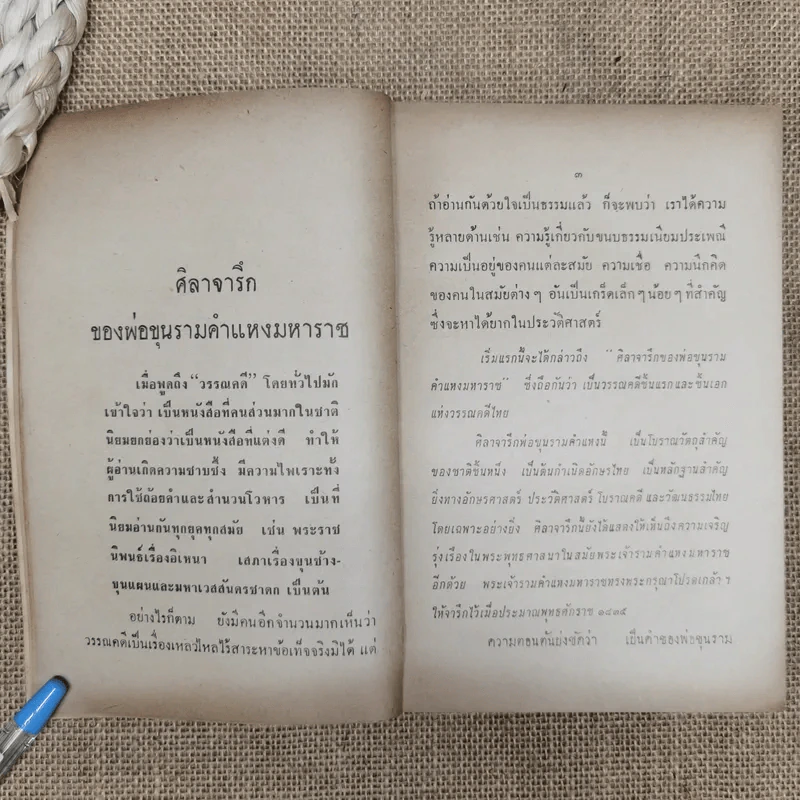 ศิลาจารึก
ของพ่อขุนรามคำแหงมหาราช
เมื่อพูดถึง “วรรณคดี” โดยทั่วไปมัก
เข้าใจว่า เป็นหนังสือที่คนส่วนมากในชาติ
นิยมยกย่องว่าเป็นหนังสือที่แต่งดี ทำให้
ผู้อ่านเกิดความซาบซึ้ง มีความไพเราะทั้ง
การใช้ถ้อยคำและสำนวนโวหาร เป็นที่
นิยมอ่านกันทุกยุคทุกสมัย เช่น พระราช
นิพนธ์เรื่องอิเหนา เสภาเรื่องขุนช้าง-
ขุนแผนและมหาเวสสันดรชาดก เป็นต้น
อย่างไรก็ตาม ยังมีคนอีกจำนวนมากเห็นว่า
วรรณคดีเป็นเรื่องเหลวไหลไร้สาระหาข้อเท็จจริงมิได้ แต่
๓
ถ้าอ่านกันด้วยใจเป็นธรรมแล้ว ก็จะพบว่า เราได้ความ
รู้หลายด้านเช่น ความรู้เกี่ยวกับขนบธรรมเนียมประเพณี
ความเป็นอยู่ของคนแต่ละสมัย ความเชื่อ ความนึกคิด
ของคนในสมัยต่าง ๆ อันเป็นเกร็ดเล็ก ๆ น้อย ๆ ที่สำคัญ
ซึ่งจะหาได้ยากในประวัติศาสตร์
เริ่มแรกนี้จะได้กล่าวถึง “ศิลาจารึกของพ่อขุนราม
คำแหงมหาราช” ซึ่งถือกันว่า เป็นวรรณคดีชิ้นแรกและชิ้นเอก
แห่งวรรณคดีไทย
ศิลาจารึกพ่อขุนรามคำแหงนี้ เป็นโบราณวัตถุสำคัญ
ของชาติชิ้นหนึ่ง เป็นต้นกำเนิดอักษรไทย เป็นหลักฐานสำคัญ
ยิ่งทางอักษรศาสตร์ ประวัติศาสตร์ โบราณคดี และวัฒนธรรมไทย
โดยเฉพาะอย่างยิ่ง ศิลาจารึกนี้ยังได้แสดงให้เห็นถึงความเจริญ
รุ่งเรืองในพระพุทธศาสนาในสมัยพระเจ้ารามคำแหงมหาราช
อีกด้วย พระเจ้ารามคำแหงมหาราชทรงพระกรุณาโปรดเกล้า ฯ
ให้จารึกไว้เมื่อประมาณพุทธศักราช ๑๘๓๕
ความตอนต้นบ่งชัดว่า เป็นคำของพ่อขุนราม